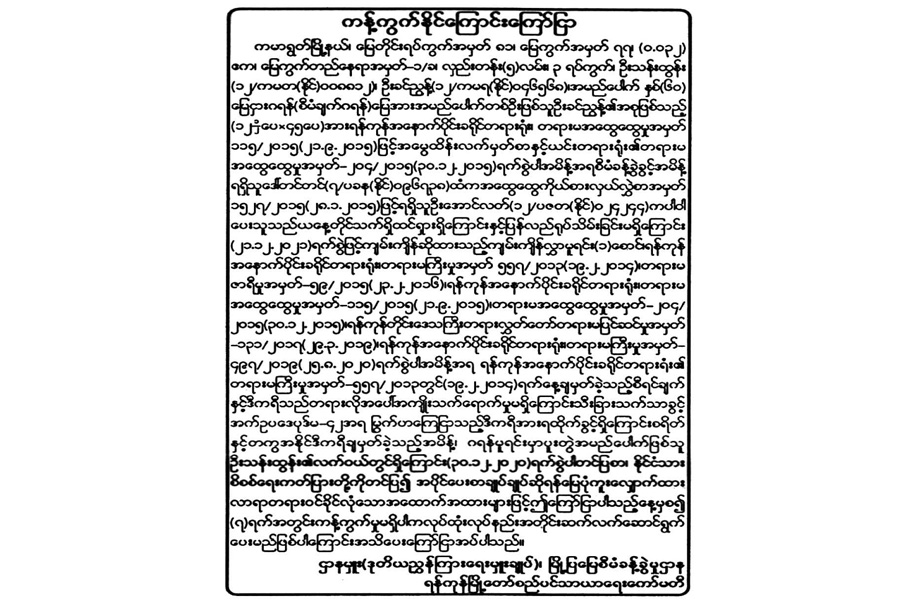 ကန့်ကွက်နိုင်ကြောင်းကြော်ငြာ
ကမာရွတ်မြို့နယ်၊ မြေတိုင်းရပ်ကွက်အမှတ် ၈၁၊ မြေကွက်အမှတ် ၇၇၊ (၀.၀၃၂)
ဧက၊ မြေကွက်တည်နေရာအမှတ်-၁/ခ၊ လှည်းတန်း(၅)လမ်း၊ ၃ ရပ်ကွက်၊ ဦးသန်းထွန်း
(၁၂/ကမတ(နိုင်)၀၀၈၈၁၂)၊ ဦးခင်ညွန့်(၁၂/ကမရ(နိုင်)၀၄၆၅၆၈)အမည်ပေါက် နှစ်(၆၀)
မြေငှားဂရန်(စီမံချက်ဂရန်)မြေအားအမည်ပေါက်တစ်ဦးဖြစ်သူဦးခင်ညွန့်၏အစုဖြစ်သည့်
ပေ×၄၅ပေ)အားရန်ကုန်အနောက်ပိုင်းခရိုင်တရားရုံး၊ တရားမအထွေထွေမှုအမှတ်
၁၁၅/၂၀၁၅(၂၁.၉.၂၀၁၅)ဖြင့်အမွေထိန်းလက်မှတ်စာနှင့်ယင်းတရားရုံး၏တရားမ
အထွေထွေမှုအမှတ်-၂၀၄/၂၀၁၅(၃၀.၁၂.၂၀၁၅)ရက်စွဲပါအမိန့်အရစီမံခန့်ခွဲခွင့်အမိန့်
ရရှိသူဒေါ်တင်တင်(၇/ပခန(နိုင်)၀၉၆၇၃၈)ထံကအထွေထွေကိုယ်စားလှယ်လွှဲစာအမှတ်
၁၅၂၇/၂၀၁၅(၂၈.၁.၂၀၁၅)ဖြင့်ရရှိသူဦးအောင်လတ်(၁၂/ပဇတ(နိုင်)၀၂၄၂၄၄)ကပါဝါ
ပေးသူသည်ယနေ့တိုင်သက်ရှိထင်ရှားရှိကြောင်းနှင့်ပြန်လည်ရုပ်သိမ်းခြင်းမရှိကြောင်း
(၂၁.၁၂.၂၀၂၁)ရက်စွဲဖြင့်ကျမ်းကျိန်ဆိုထားသည့်ကျမ်းကျိန်လွှာမူရင်း(၁)စောင်ရန်ကုန်
အနောက်ပိုင်းခရိုင်တရားရုံး၊တရားမကြီးမှုအမှတ် ၅၅၇/၂၀၁၃(၁၉.၂.၂၀၁၄)၊တရားမ
ဇာရီမှုအမှတ်-၅၉/၂၀၁၅(၂၃.၂.၂၀၁၆)၊ရန်ကုန်အနောက်ပိုင်းခရိုင်တရားရုံး၊တရားမ
အထွေထွေမှုအမှတ်-၁၁၅/၂၀၁၅(၂၁.၉.၂၀၁၅)၊တရားမအထွေထွေမှုအမှတ်-၂၀၄/
၂၀၁၅(၃၀.၁၂.၂၀၁၅)၊ရန်ကုန်တိုင်းဒေသကြီးတရားလွှတ်တော်တရားမပြင်ဆင်မှုအမှတ်
-၁၃၁/၂၀၁၇(၂၉.၃.၂၀၁၉)၊ရန်ကုန်အနောက်ပိုင်းခရိုင်တရားရုံး၊တရားမကြီးမှုအမှတ်-
၄၉၇/၂၀၁၉(၂၅.၈.၂၀၂၀)ရက်စွဲပါအမိန့်အရ ရန်ကုန်အနောက်ပိုင်းခရိုင်တရားရုံး၏
တရားမကြီးမှုအမှတ်-၅၅၇/၂၀၁၃တွင်(၁၉.၂.၂၀၁၄)ရက်နေ့ချမှတ်ခဲ့သည့်စီရင်ချက်
နှင့်ဒီကရီသည်တရားလိုအပေါ်အကျိုးသက်ရောက်မှုမရှိကြောင်းသီးခြားသက်သာခွင့်
အက်ဥပဒေပုဒ်မ-၄၂အရ မြွက်ဟကြေငြာသည့်ဒီကရီအားရထိုက်ခွင့်ရှိကြောင်းစရိတ်
နှင့်တကွအနိုင်ဒီကရီချမှတ်ခဲ့သည့်အမိန့်၊ ဂရန်မူရင်းမှာပူးတွဲအမည်ပေါက်ဖြစ်သူ
ဦးသန်းထွန်း၏လက်ဝယ်တွင်ရှိကြောင်း(၃၀.၁၂.၂၀၂၀)ရက်စွဲပါတင်ပြစာ၊ နိုင်ငံသား
စိစစ်ရေးကတ်ပြားတို့ကိုတင်ပြ၍ အပိုင်ပေးစာချုပ်ချုပ်ဆိုရန်မြေပုံကူးလျှောက်ထား
လာရာတရားဝင်ခိုင်လုံသောအထောက်အထားများဖြင့်ဤကြော်ငြာပါသည့်နေ့မှစ၍
(၇)ရက်အတွင်းကန့်ကွက်မှုမရှိပါကလုပ်ထုံးလုပ်နည်းအတိုင်းဆက်လက်ဆောင်ရွက်
ပေးမည်ဖြစ်ပါကြောင်းအသိပေးကြော်ငြာအပ်ပါသည်။
ဌာနမှူး(ဒုတိယညွှန်ကြားရေးမှူးချုပ်)၊ မြို့ပြမြေစီမံခန့်ခွဲမှုဌာန
ရန်ကုန်မြို့တော်စည်ပင်သာယာရေးကော်မတီ